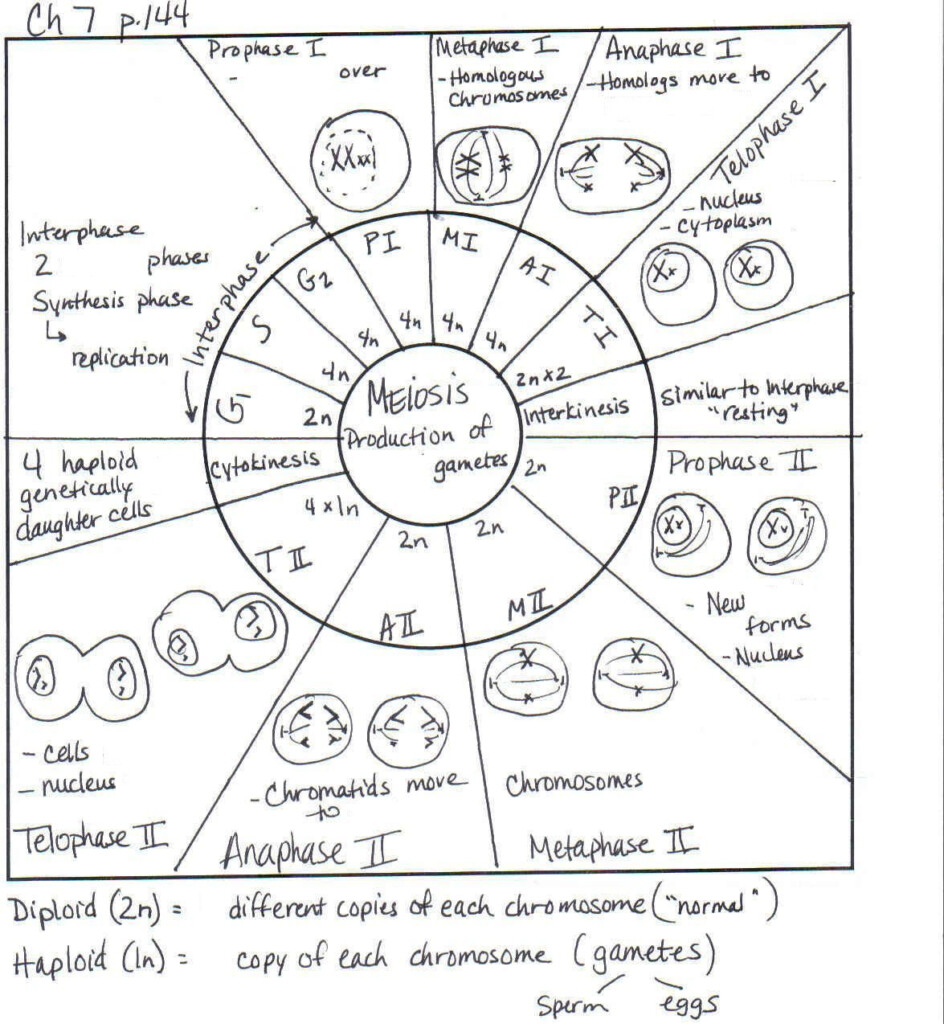 Ch 7 p.144
Prophase I
- over
Metaphase I
- Homologous
chromosomes
Anaphase I
- Homologs move to
Telophase I
- nucleus
- cytoplasm
Interphase
2 phases
Synthesis phase
↳
replication
Interphase
G1
S
G2
PI
MI
AI
TI
2n
4n
4n
4n
4n
4n
2n×2
Interkinesis
Similar to Interphase
"resting"
Meiosis
Production of
gametes
4 haploid
genetically
daughter cells
Cytokinesis
4×1n
TII
2n
AII
2n
MII
2n
PII
Prophase II
- New
forms
- Nucleus
- cells
- nucleus
Telophase II
- Chromatids move
to
Anaphase II
Chromosomes
Metaphase II
Diploid (2n) = different copies of each chromosome ("normal")
Haploid (1n) = copy of each chromosome (gametes)
Sperm eggs